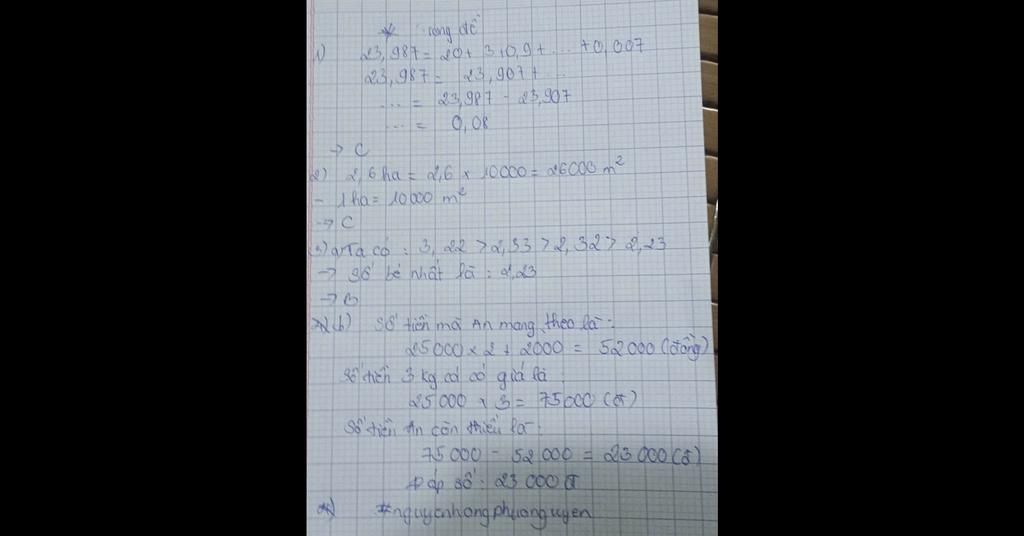 * trong đề
1) 23,987 = 20 + 3 + 0,9 + ... + 0,007
23,987 = 23,907 + ...
... = 23,987 - 23,907
... = 0,08
→ C
2) 2,6 ha = 2,6 x 10000 = 26000 m²
- 1 ha = 10000 m²
→ C
3) a) Ta có : 3,22 > 2,33 > 2,32 > 2,23
→ Số bé nhất là : 2,23
→ B
b) Số tiền mà An mang theo là :
25000 x 2 + 2000 = 52000 (đồng)
Số tiền 3 kg cá có giá là :
25000 x 3 = 75000 (đ)
Số tiền An còn thiếu là :
75000 - 52000 = 23000 (đ)
Đáp số : 23000 đ
#nguyenhongphuonguyen